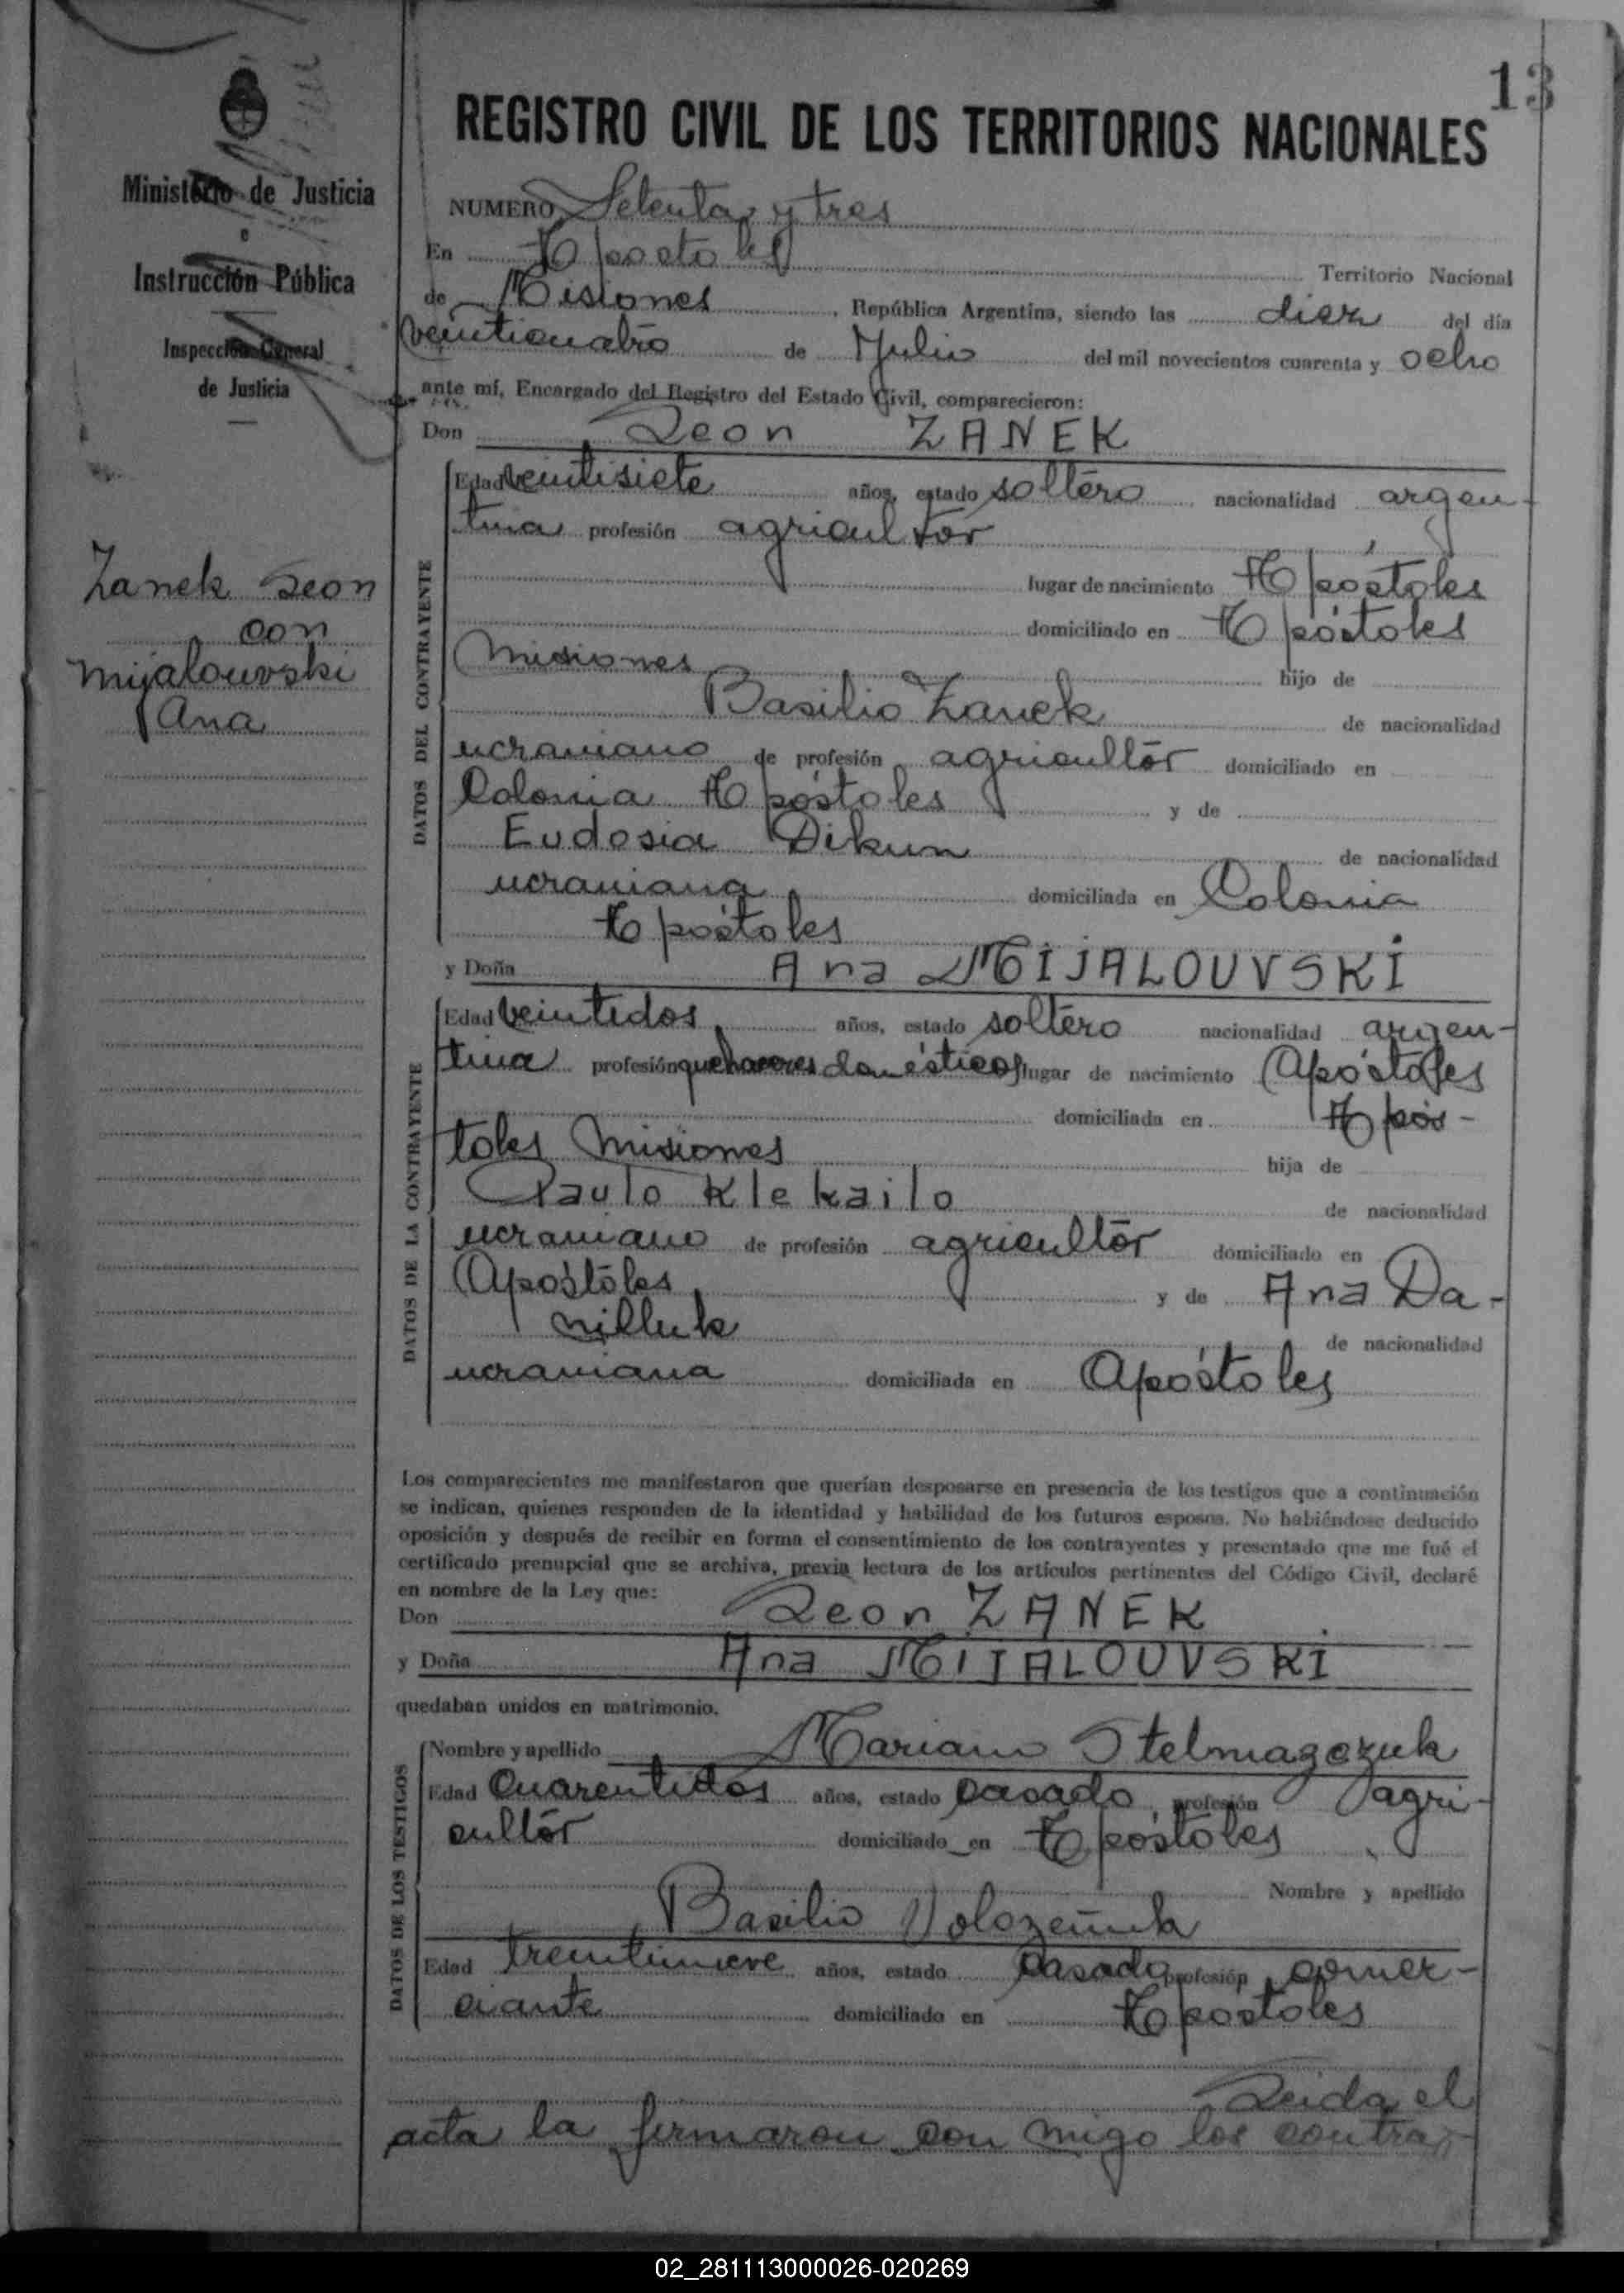 13
REGISTRO CIVIL DE LOS TERRITORIOS NACIONALES
Ministerio de Justicia
e
Instrucción Pública
Inspección General
de Justicia
Zanek Leon
con
Mijalouvski
Ana
NUMERO Setenta y tres
En Apostoles Territorio Nacional
de Misiones, República Argentina, siendo las diez del día
veinticuatro de Julio del mil novecientos cuarenta y ocho
ante mí, Encargado del Registro del Estado Civil, comparecieron:
Don Leon ZANEK
DATOS DEL CONTRAYENTE
Edad veintisiete años, estado soltero nacionalidad argen-
tina profesión agricultor
lugar de nacimiento Apóstoles
domiciliado en Apóstoles
Misiones hijo de
Basilio Zanek de nacionalidad
ucraniano de profesión agricultor domiciliado en
Colonia Apóstoles y de
Eudosia Dikun de nacionalidad
ucraniana domiciliada en Colonia
Apóstoles
y Doña Ana MIJALOUVSKI
DATOS DE LA CONTRAYENTE
Edad veintidos años, estado soltero nacionalidad argen-
tina profesión quehaceres domésticos lugar de nacimiento Apóstoles
domiciliada en Após-
toles Misiones hija de
Paulo Klekailo de nacionalidad
ucraniano de profesión agricultor domiciliado en
Apóstoles y de Ana Da-
nilluk de nacionalidad
ucraniana domiciliada en Apóstoles
Los comparecientes me manifestaron que querían desposarse en presencia de los testigos que a continuación
se indican, quienes responden de la identidad y habilidad de los futuros esposos. No habiéndose deducido
oposición y después de recibir en forma el consentimiento de los contrayentes y presentado que me fué el
certificado prenupcial que se archiva, previa lectura de los artículos pertinentes del Código Civil, declaré
en nombre de la Ley que:
Don Leon ZANEK
y Doña Ana MIJALOUVSKI
quedaban unidos en matrimonio.
DATOS DE LOS TESTIGOS
Nombre y apellido Mariano Stelmaszczuk
Edad Cuarentidos años, estado casado, profesión agri-
cultor domiciliado en Apóstoles
Nombre y apellido
Basilio
Edad treintinueve años, estado casado profesión comer-
ciante domiciliado en Apostoles
Leida el
acta la firmaron con migo los contra
02_281113000026-020269